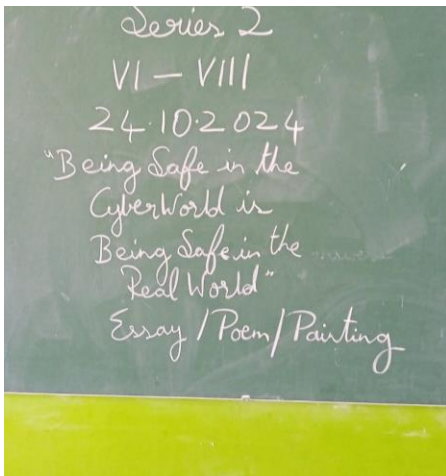 Series 2
VI – VIII
24.10.2024
"Being Safe in the
CyberWorld is
Being Safe in the
Real World"
Essay / Poem / Painting